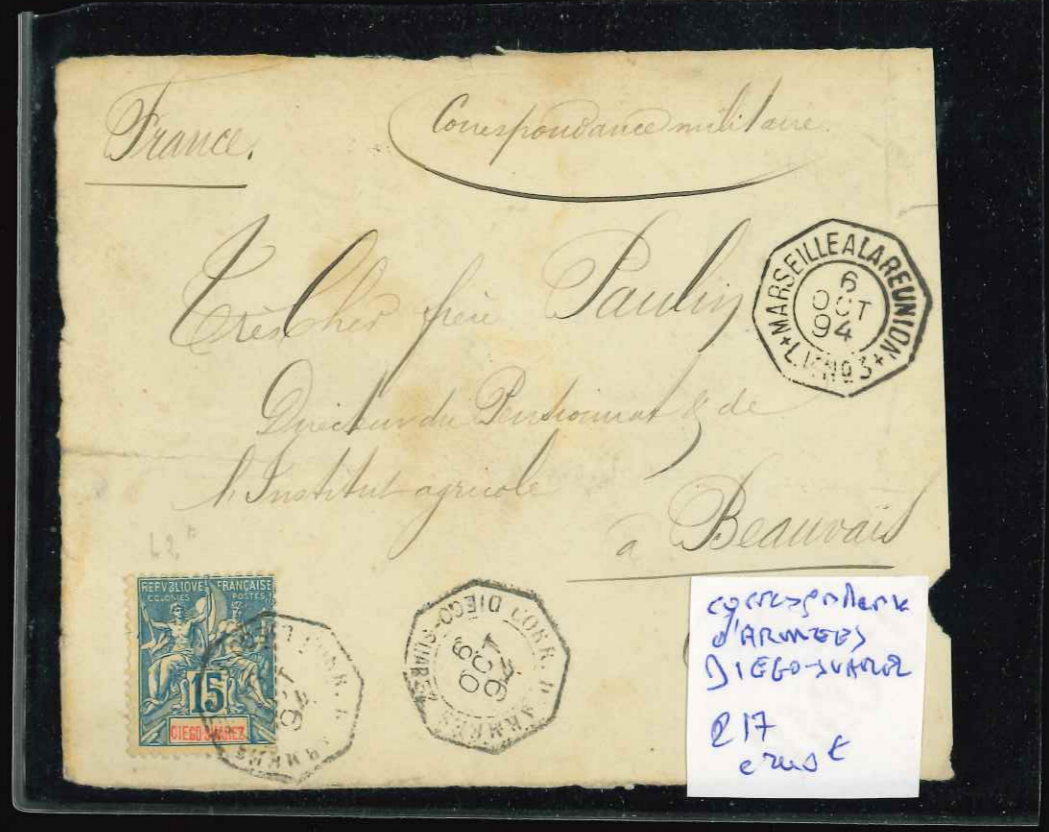 France.
Correspondance militaire.
Très Cher frère Paulin
Directeur du Pensionnat & de
l'Institut agricole
à Beauvais
MARSEILLE A LA REUNION
6
OCT
94
+L.V.Nº3+
REPVBLIQVE FRANÇAISE
COLONIES POSTES
15
DIEGO-SUAREZ
CORR. D ARMEES
OCT
94
CORR. D ARMEES DIEGO-SUAREZ
6
OCT
94
d'ARMEES
DIEGO-SUAREZ